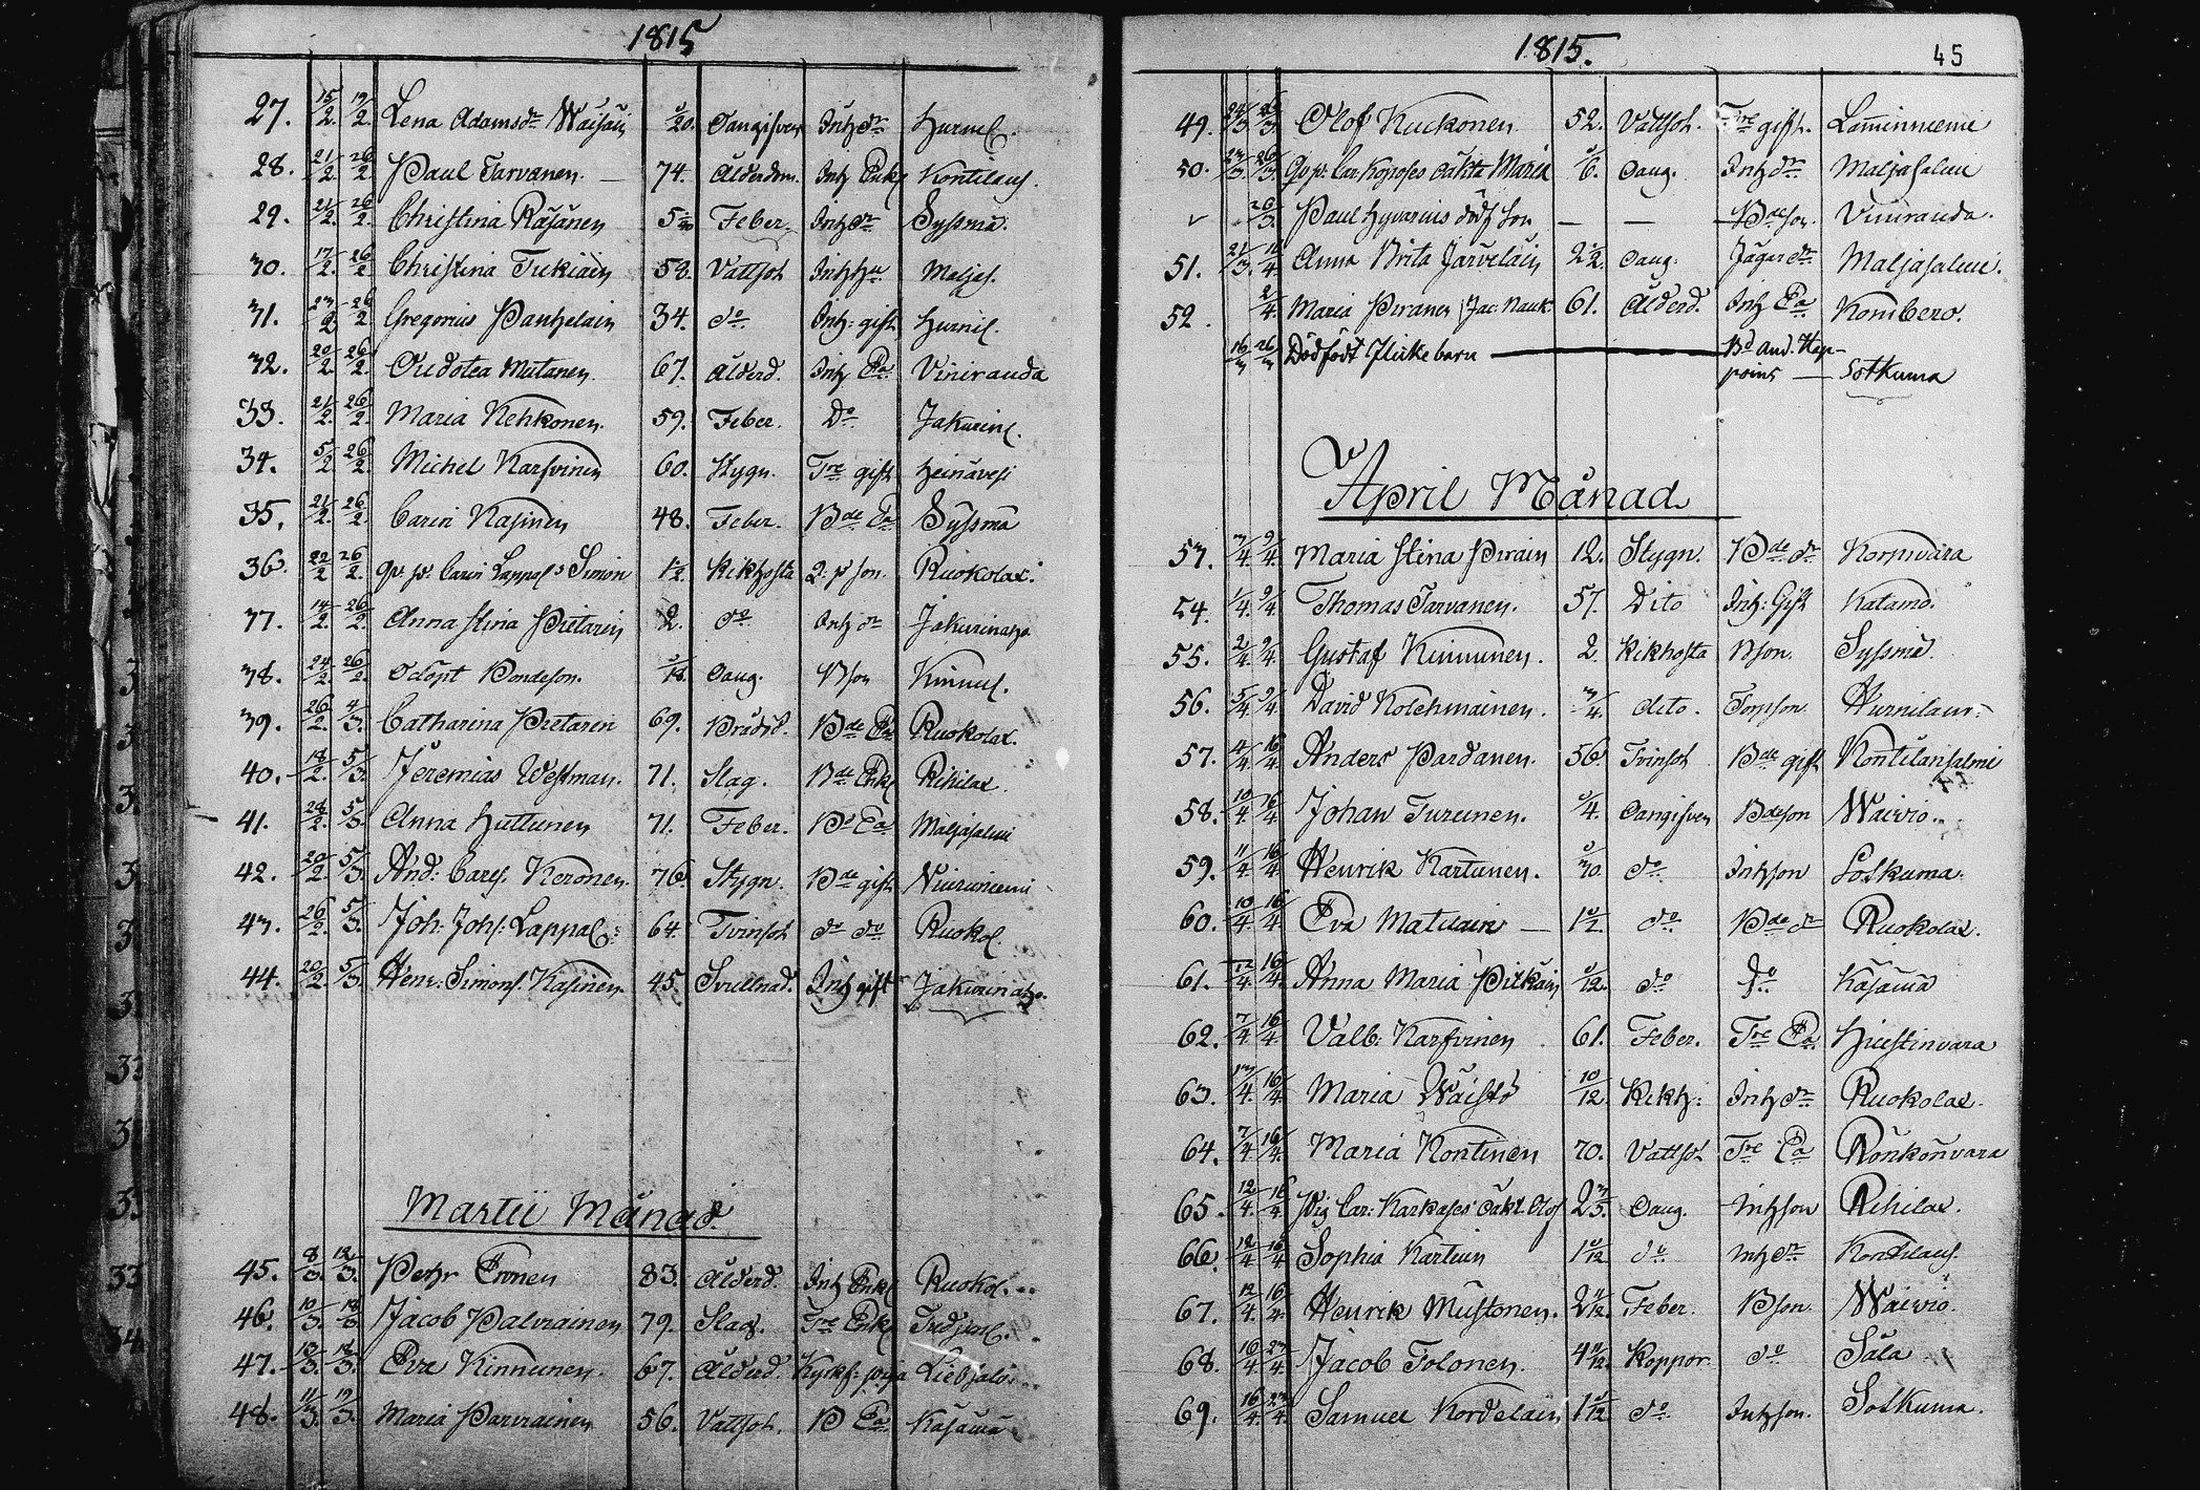 1815
27. 15/2. 19/2. Lena Adamsdr Waisäin /20. Oangifven Inhdr Hurnul.
28. 21/2. 26/2. Paul Tarvanen. — 74. Ålderdom. Inh Enkl Kontilaus.
29. 21/2. 26/2. Christina Räsänen 5 Feber. Inhdr Syssmä.
30. 17/2. 26/2. Christina Tukiain 58. Vattsot Inhhu Maljas.
31. 23/2 26/2 Gregorius Panhelain 34. do. Inh: gift Hurnil.
32. 20/2 26/2. Oudotea Matanen. 67. Ålderd. Inh Ea. Viniranda
33. 21/2. 26/2. Maria Nehkonen. 59. Feber. Do Jakurinl.
34. 5/2 26/2. Michel Karfvinen 60. Stygn. Tre gift Heinävesi
35. 21/2. 26/2. Carin Kasinen 48. Feber. Bde Ea Syssmä
36. 22/2 26/2. qv. p. Carin Lappals Simon 1/2. Kikhosta Q: p son. Ruokolax.
37. 14/2. 26/2. Anna Stina Pietarin 2. do Inh dr Jakurinaho
38. 24/2. 26/2. Odöpt Bondeson. Oaug. Bson Kinnul.
39. 26/2. 4/3. Catharina Pietaren 69. Brådd. Bde Ea Ruokolax.
40. 18/2. 5/3. Jeremias Westman. 71. Slag. Bde Enkl Rihilax.
41. 28/2. 5/3. Anna Huttunen 71. Feber. Bd Ea Maljasalmi
42. 20/2. 5/3. And: Carls. Keronen. 76. Stygn. Bde gift Niiriniemi
43. 26/2. 5/3. Joh: Johs: Lappal: 64. Tvinsot do do Ruokol.
44. 20/2. 5/3. Henr: Simons. Kasinen 45. Svullnad. Inh gift Jakurinaho.
Martii Månad.
45. 8/3. 12/3. Petter Eronen 83. Ålderd. Inh Enkl Ruokol.
46. 10/3. 18/3. Jacob Palviainen 79. Slag. Tre Enkl
47. 13/3. 18/3. Eva Kinnunen. 67. Ålderd. Liebsalo.
48. 11/3. 19/3. Maria Parviainen 56. Vattsot. B Ea. Käsämä
1815. 45
49. 24/3. 26/3. Olof Kuckonen 52. Vattsot. Tre gift. Laminniemi
50. 23/3. 26/3. Qvp: Car. Kopposes oäkta Maria 6. Oaug. Inh dr Maljasalmi
26/3. Paul Hyvärins dödf son — — Bdeson. Viniranda.
51. 21/3. 10/4. Anna Brita Järveläin 2 1/2. Oaug. Jäger dr Maljasalmi.
52. 2/4. Maria Piranen /Jac: Nauk. 61. Ålderd. Inh Ea Kombero.
16/3 26/3 Dödfödt flickebarn — Bd And. Hap-
poins — Sotkuma
April Månad
53. 3/4. 9/4. Maria Stina Pirain 12. Stygn. Bde dr Kornwara
54. 1/4. 9/4. Thomas Tarvanen. 57. Dito Inh: Gift Katamo.
55. 2/4. 9/4. Gustaf Kinnunen. 2. Kikhosta Bson. Syssmä
56. 5/4. 9/4. David Kolehmainen. 3/4. dito. Torpson Hurnilam:
57. 4/4. 16/4. Anders Pardanen. 56. Tvinsot Bde gift Kontilansalmi
58. 10/4. 16/4. Johan Turunen. /4. Oangifven Bdeson Waivio.
59. 11/4. 16/4. Henrik Kartunen. do Inhson Sotkuma.
60. 10/4. 16/4. Eva Matilain — do Bde dr Ruokolax.
61. 12/4. 16/4. Anna Maria Pitkäin /12. do do Käsämä
62. 7/4. 16/4. Valb: Karfvinen 61. Feber. Tre Ea Hiiestinvara
63. 13/4. 16/4. Maria Wäistö 10/12. Kikh: Inh dr Ruokolax.
64. 7/4. 16/4. Maria Kontinen 70. Vattsot Tre Ea Rönkönvara
65. 12/4. 16/4. Pig Car: Karkases oäkt Olof 2 3/5. Oaug. Inhson Rihilax.
66. 12/4. 16/4. Sophia Kartuin 1 /12 do Inhdr Kontilaus.
67. 12/4. 16/4. Henrik Mustonen. 2 /12 Feber. Bson. Waivio.
68. 16/4. 23/4. Jacob Tolonen. 4 /12. Koppor. do Säla
69. 16/4. 23/4. Samuel Kordelain 1 /12 do Inhson. Sotkuma.